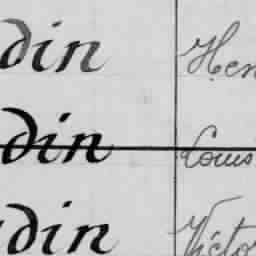 din Hen
din Louis
din Victo